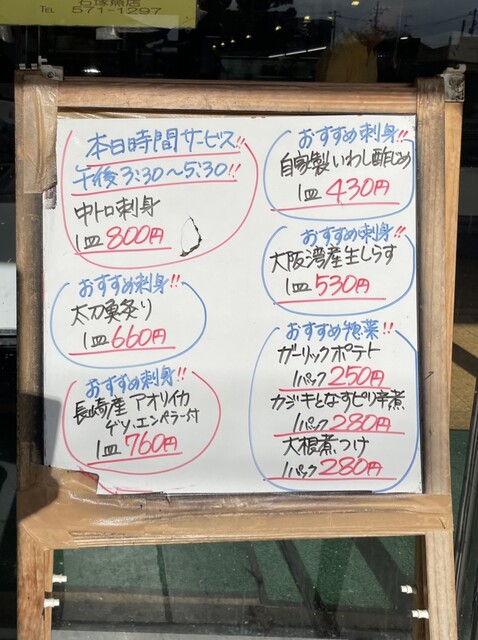 石塚魚店
TEL 571-1297
本日時間サービス!!
午後3:30〜5:30!!
中トロ刺身
1皿 800円
おすすめ刺身!!
太刀魚炙り
1皿 660円
おすすめ刺身!!
長崎産 アオリイカ
ゲソ、エンペラー付
1皿 760円
おすすめ刺身!!
自家製 いわし酢じめ
1皿 430円
おすすめ刺身!!
大阪湾産生しらす
1皿 530円
おすすめ惣菜!!
ガーリックポテト
1パック 250円
カジキとなすピリ辛煮
1パック 280円
大根煮つけ
1パック 280円